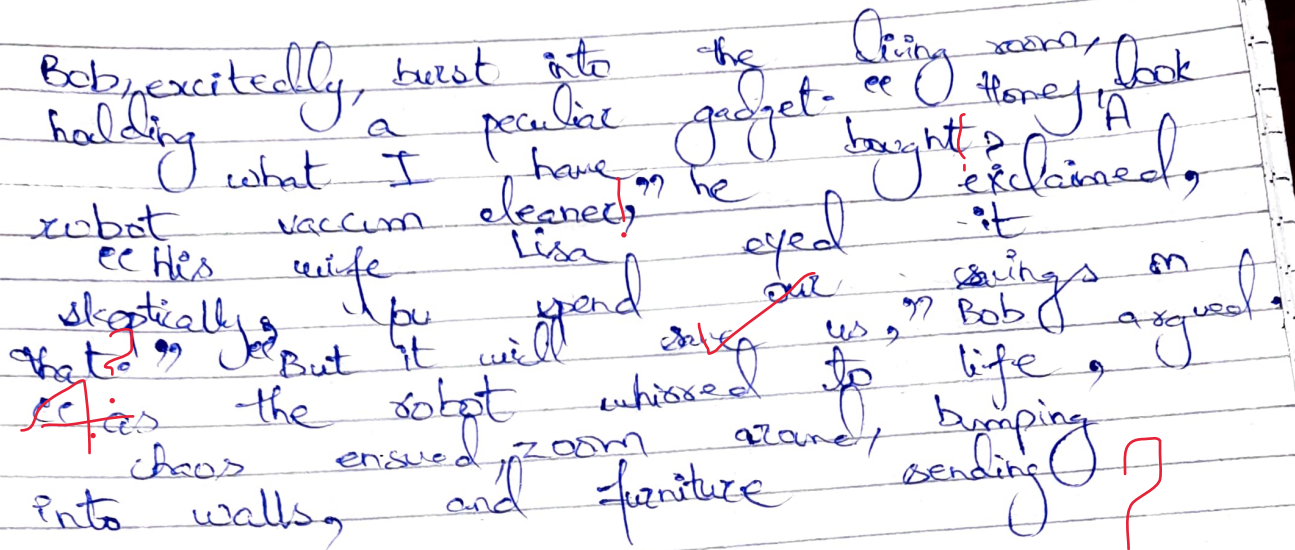 Bob, excitedly, burst into the living room,
holding a peculiar gadget. " Honey, look
what I have bought? 'A
robot vaccum cleaner!," he exclaimed,
"His wife Lisa eyed it
skeptically, You spend our savings on
that?" "But it will us," Bob argued.
"As the robot whirred to life,
chaos ensued, zoom around, bumping
into walls, and furniture sending
?